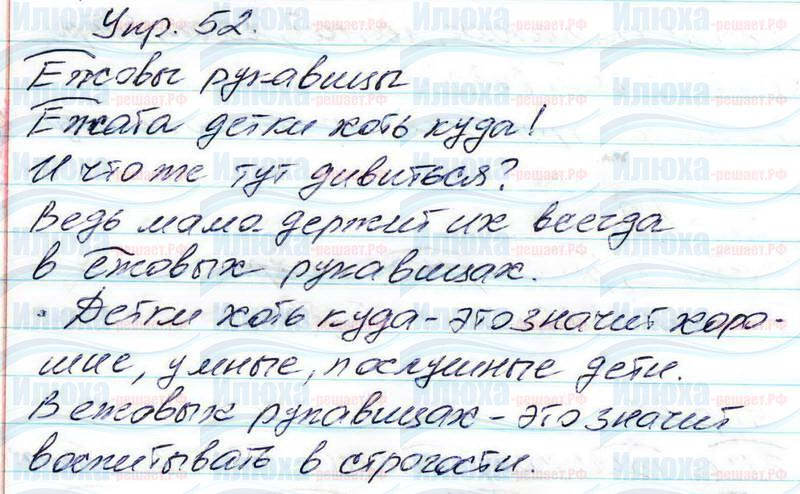 Упр. 52.
Ежовы рукавицы
Ежата детки хоть куда!
И что же тут дивиться?
Ведь мама держит их всегда
в ежовых рукавицах.
Детки хоть куда - это значит хоро-
шие, умные, послушные дети.
В ежовых рукавицах - это значит
воспитывать в строгости.